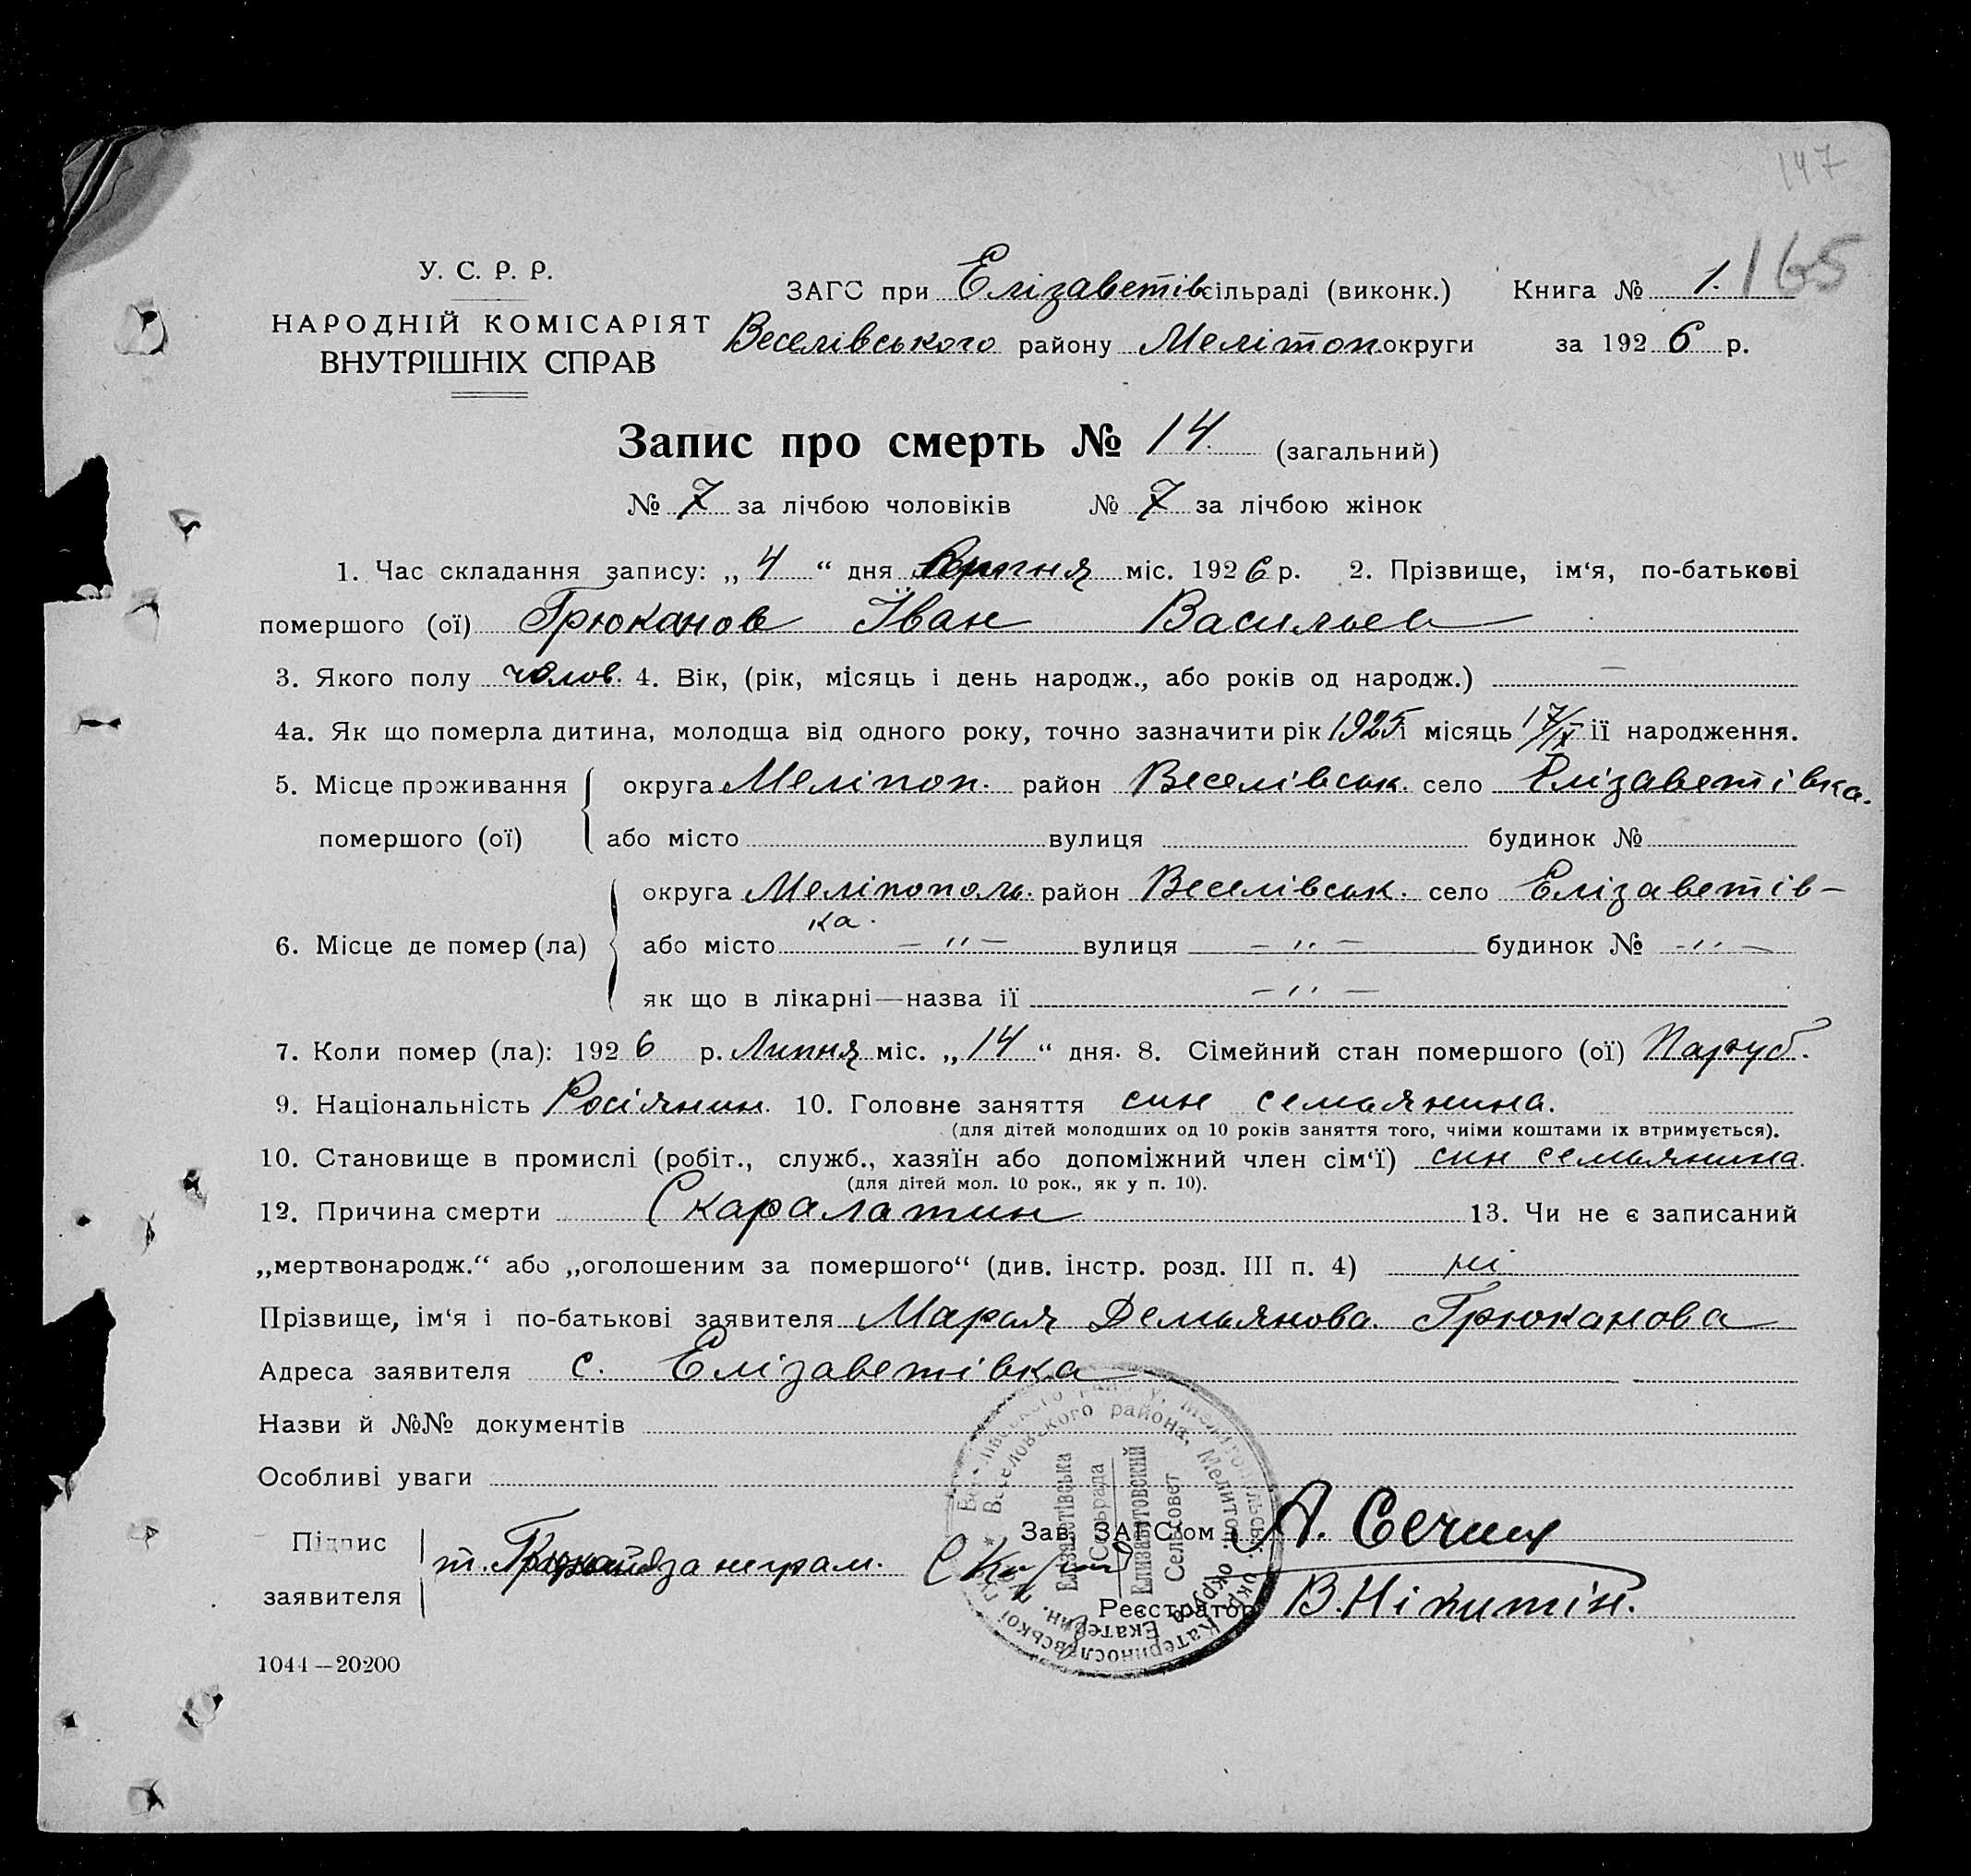 147
165
У. С. Р. Р.
НАРОДНІЙ КОМІСАРІЯТ
ВНУТРІШНІХ СПРАВ
ЗАГС при Елізаветів сільраді (виконк.) Книга № 1.
Веселівського району Мелітоп. округи за 1926 р.
Запис про смерть № 14. (загальний)
№ 7 за лічбою чоловіків № 7 за лічбою жінок
1. Час складання запису: „ 4 “ дня міс. 1926 р. 2. Прізвище, ім‘я, по-батькові
помершого (ої) Грюканов Іван Васильев
3. Якого полу чолов. 4. Вік, (рік, місяць і день народж., або років од народж.) —
4а. Як що померла дитина, молодща від одного року, точно зазначити рік 1925 і місяць 17/IX її народження.
5. Місце проживання помершого (ої) округа Меліпоп. район Веселівськ. село Елізаветівка.
або місто вулиця будинок №
6. Місце де помер (ла) округа Меліпополь. район Веселівськ. село Елізаветів-
ка.
або місто — „ — вулиця — „ — будинок № — „ —
як що в лікарні—назва її — „ —
7. Коли помер (ла): 1926 р. Липня міс. „ 14 “ дня. 8. Сімейний стан помершого (ої) Паруб.
9. Національність Росіянин. 10. Головне заняття син семьянина.
(для дітей молодших од 10 років заняття того, чиїми коштами їх втримується).
10. Становище в промислі (робіт., служб., хазяїн або допоміжний член сім‘ї) син семьянина.
(для дітей мол. 10 рок., як у п. 10).
12. Причина смерти Скаралатин 13. Чи не є записаний
„мертвонародж.“ або „оголошеним за помершого“ (див. інстр. розд. III п. 4) ні
Прізвище, ім‘я і по-батькові заявителя Марая Демьянова. Грюканова
Адреса заявителя с. Елізаветівка
Назви й №№ документів
Особливі уваги
Підпис заявителя за неграм.
Зав. ЗАГС'ом А.
Реєстратор В. Нікитін.
Елізаветівська Сельрада
Елизаветовский Сельсовет
Веселовского района, Мелитоп. округа Екатерин.
1044—20200